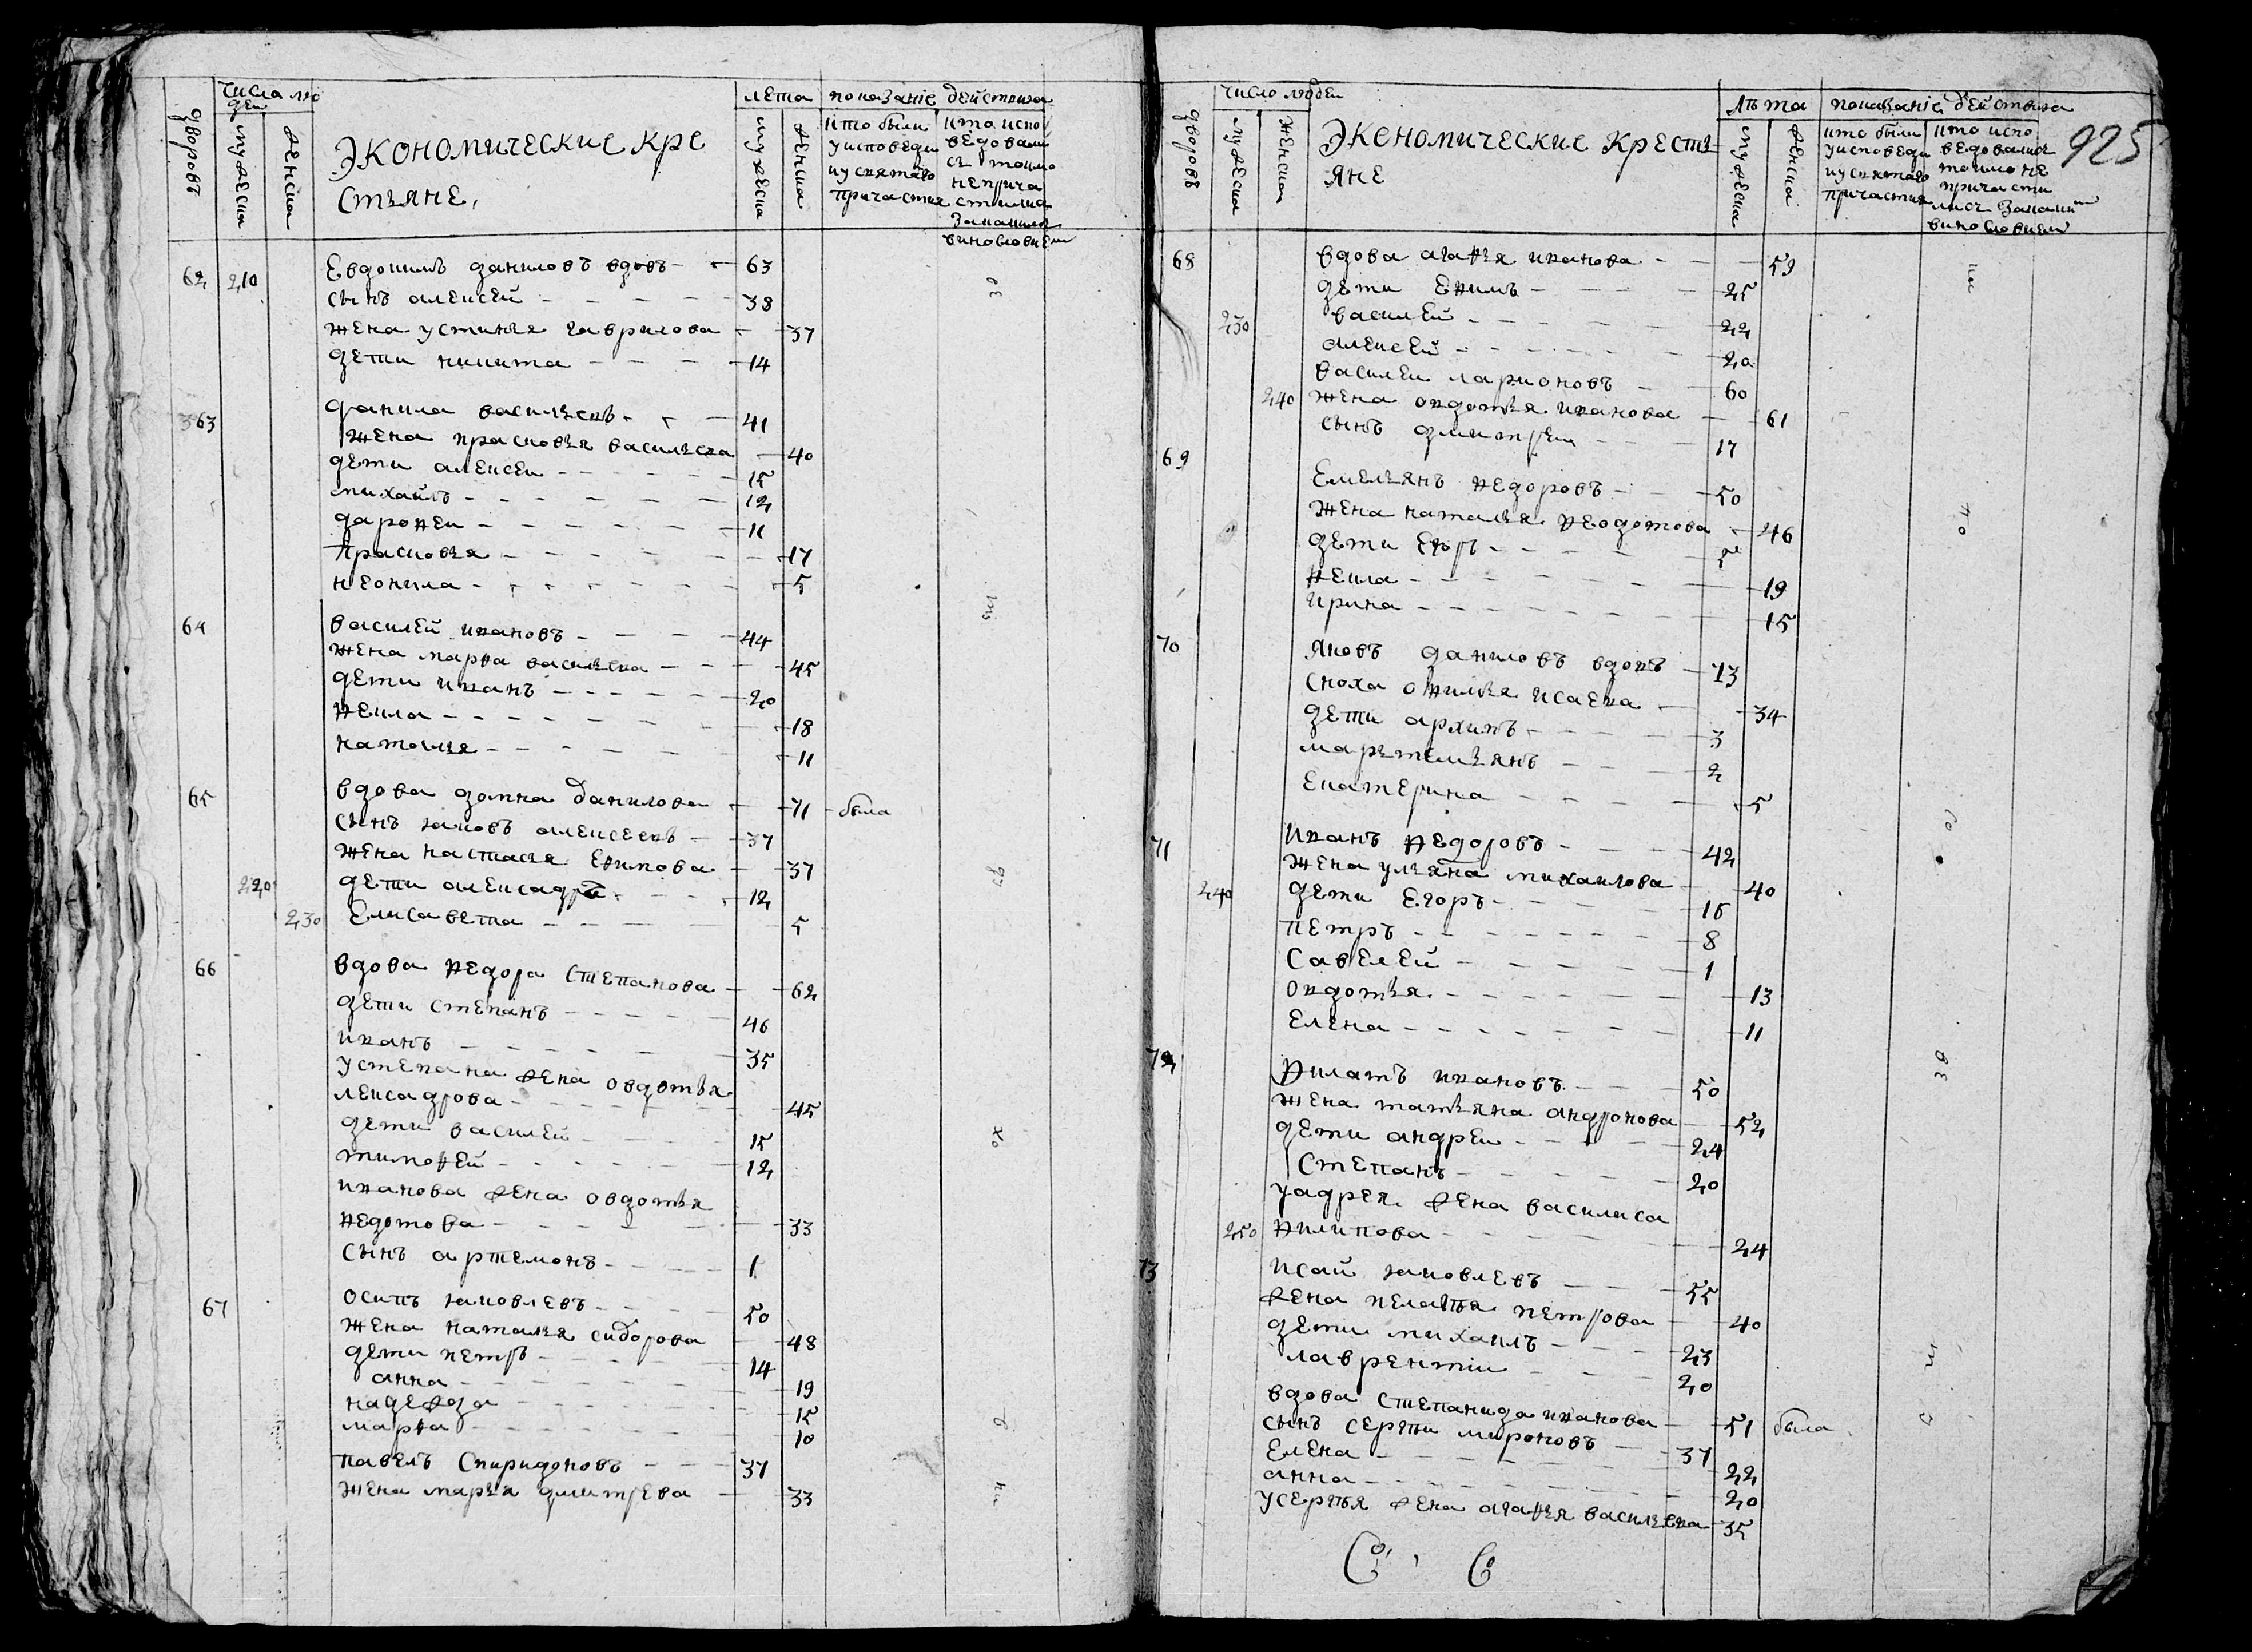 числа лю
дей
дворовъ
мужеска
женска
Экономические кре
стьяне,
лета
мужеска
женска
показаніе действия
кто были
у исповеди
и у святаго
причастия
кто испо
ведовали
сь токмо
не прича
стилис
За каким
винословием
62 210 Евдокимъ даниловъ вдовъ - - 63
сынъ алексей - - - - - 38
жена устинья гаврилова - 37
дети никита - - - - 14
363 данила васильевъ - - - 41
жена прасковья васильева - 40
дети алексеи - - - - - 15
михайлъ - - - - - - 12
дарофеи - - - - - - 11
прасковья - - - - - - 17
неонила - - - - - - - 5
64 василей ивановъ - - - - 44
жена марфа васильева - - - 45
дети иванъ - - - - - 20
фекла - - - - - - - 18
наталья - - - - - - 11
65 вдова домна данилова - 71 - была
сынъ яковъ алексеевъ - - 37
жена настасья ефимова - 37
220 дети алексадръ - - - 12
230 Елисавета - - - - 5
66 вдова федора степанова - 62
дети степанъ - - - - - 46
иванъ - - - - - - 35
у степана жена овдотья
лексадрова - - - - - - 45
дети василей - - - - 15
тимофей - - - - - - 12
иванова жена овдотья
федотова - - - - - - 33
сынъ артемонъ - - - - 1
67 осипъ яковлевъ - - - - 50
жена наталья сидорова - 48
дети петръ - - - - - 14
анна - - - - - - - 19
надежда - - - - - - 15
марфа - - - - - - 10
павелъ спиридоновъ - - - 37
жена марья дмитрева - 33
число людей
дворовъ
мужеска
женска
Экономические кресть
яне
лѣта
мужеска
женска
показаніе действия
кто были
у исповеди
и у святаго
причастия
кто испо
ведовалис
токмо не
причасти
лись За каким
винословием
925
68 вдова агафья иванова - - - 59
дети ефимъ - - - - 25
230 василей - - - - - 22
алексей - - - - - - 20
василеи ларионовъ - - 60
240 жена овдотья иванова - 61
сынъ дмитреи - - - 17
69 Емельянъ федоровъ - - - 50
жена наталья феодотова - 46
дети Егоръ - - - - - 5
фекла - - - - - - - 19
ирина - - - - - - - 15
70 яковъ даниловъ вдовъ - 73
сноха офимья исаева - - 34
дети архипъ - - - - - 3
мартемьянъ - - - - 2
екатерина - - - - - 5
71 иванъ федоровъ - - - - 42
жена ульяна михаилова - 40
240 дети Егоръ - - - - - 16
петръ - - - - - - - 8
савелей - - - - - - 1
овдотья - - - - - - 13
Елена - - - - - - - 11
72 филатъ ивановъ - - - 50
жена татьяна андронова - 52
дети андреи - - - - - 24
степанъ - - - - - - 20
у адрея жена василиса
250 филипова - - - - - - 24
73 исаи яковлевъ - - - 55
жена пелагья петрова - 40
дети михаилъ - - - - 23
лаврентіи - - - - 20
вдова степанида иванова - 51 была
сынъ сергѣи мироновъ - 37
Елена - - - - - - - 22
анна - - - - - - - 20
у сергѣя жена агафья васильева - 35